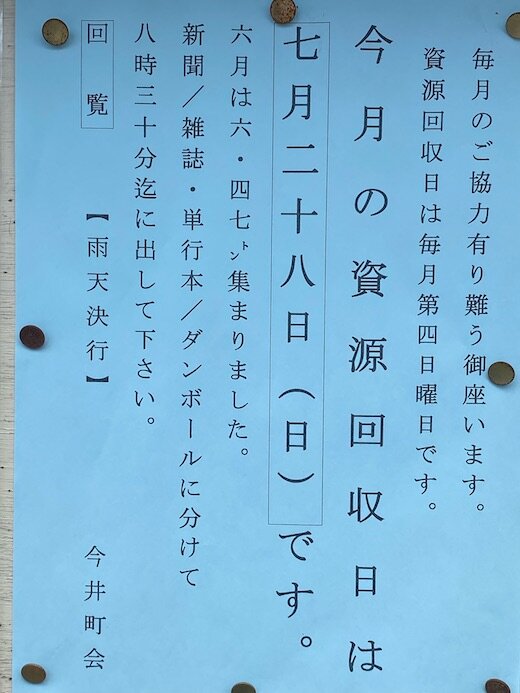 毎月のご協力有り難う御座います。
資源回収日は毎月第四日曜日です。
今月の資源回収日は
七月二十八日（日）です。
六月は六・四七㌧集まりました。
新聞／雑誌・単行本／ダンボールに分けて
八時三十分迄に出して下さい。
回覧 【雨天決行】 今井町会